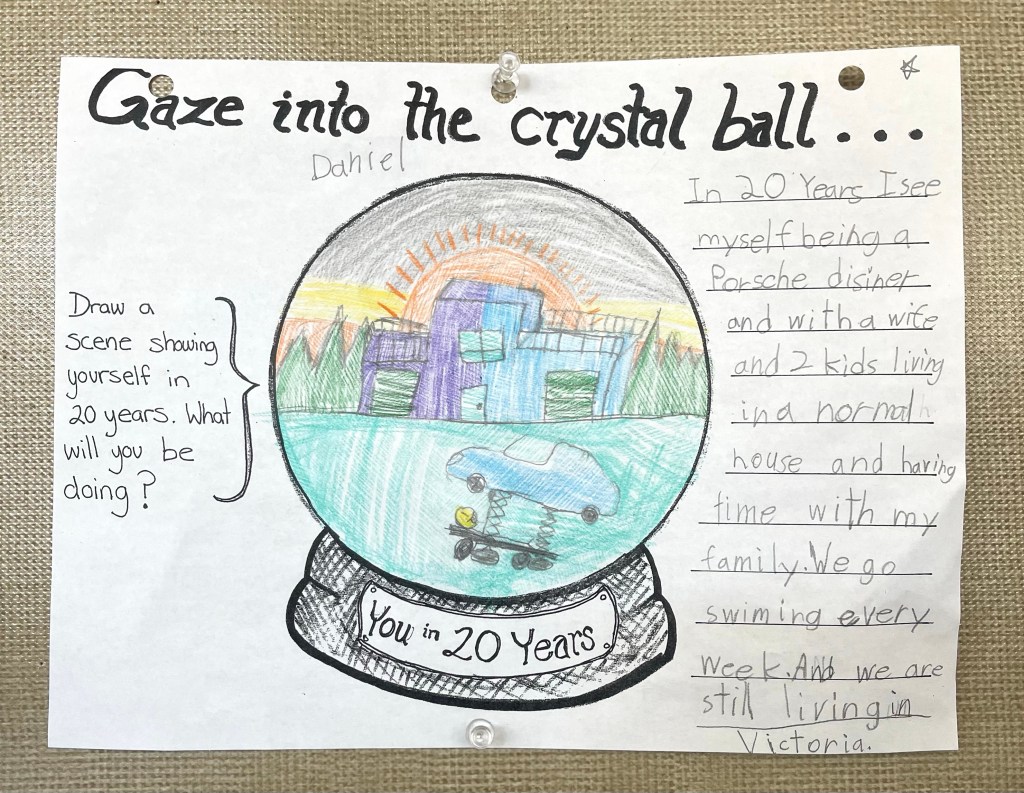 Gaze into the crystal ball...
Daniel
Draw a
scene showing
yourself in
20 years. What
will you be
doing?
You in 20 Years
In 20 Years I see
myself being a
Porsche disiner
and with a wife
and 2 kids living
in a normal
house and having
time with my
family. We go
swiming every
week. And we are
still living in
Victoria.